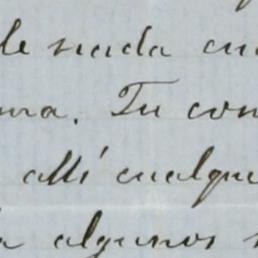 de nada cu
ma. Tu con
allí cualque
a algunos